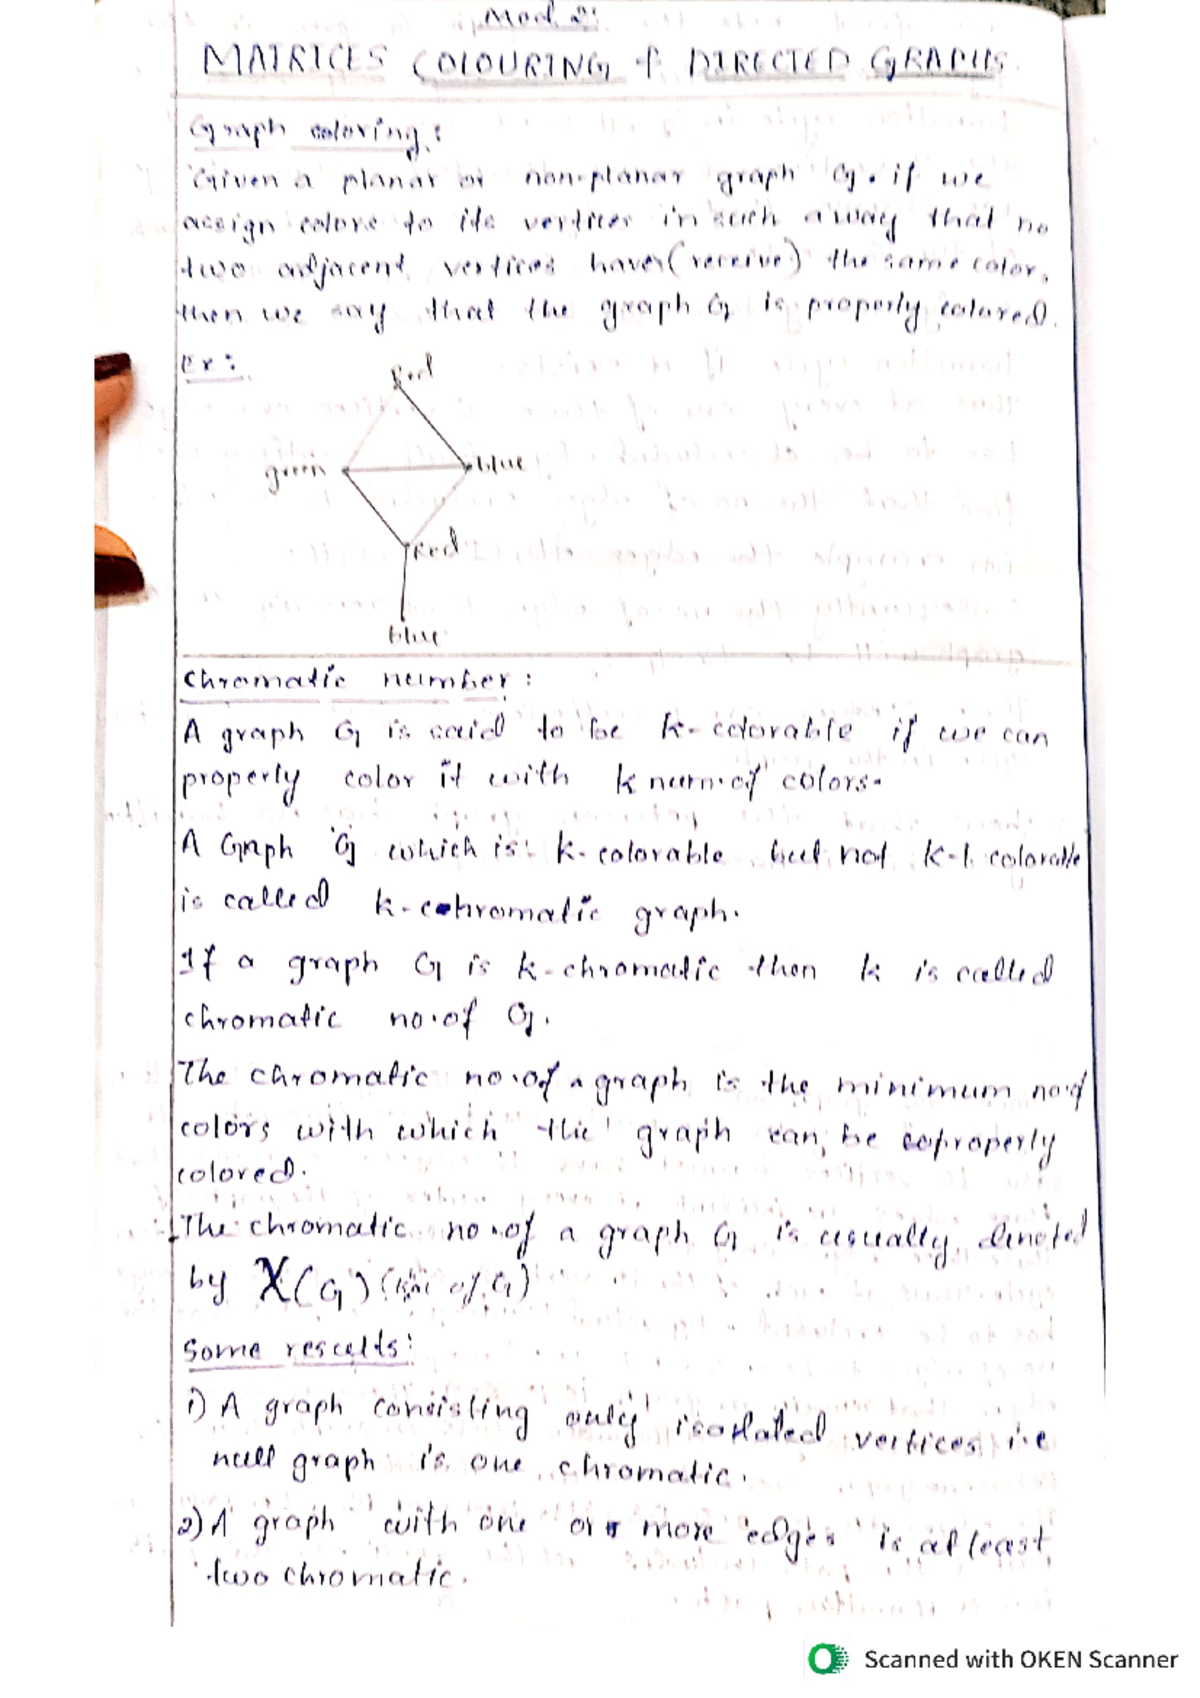 Mod 2:
MATRICES COLOURING & DIRECTED GRAPHS
Graph coloring:
Given a planar or non-planar graph G. if we
assign colors to its vertices in such a way that no
two adjacent vertices have (receive) the same color,
then we say that the graph G is properly colored.
Ex:
Red
green
blue
Red
blue
Chromatic number:
A graph G is said to be k-colorable if we can
properly color it with k num.of colors.
A Graph G which is k-colorable but not k-1 colorable
is called k-chromatic graph.
If a graph G is k-chromatic then k is called
chromatic no.of G.
The chromatic no.of a graph is the minimum no.of
colors with which the graph can be properly
colored.
The chromatic no.of a graph G is usually denoted
by χ(G) (khi of G)
Some results:
1) A graph consisting only isolated vertices i.e
null graph is one chromatic.
2) A graph with one or more edges is at least
two chromatic.
Scanned with OKEN Scanner